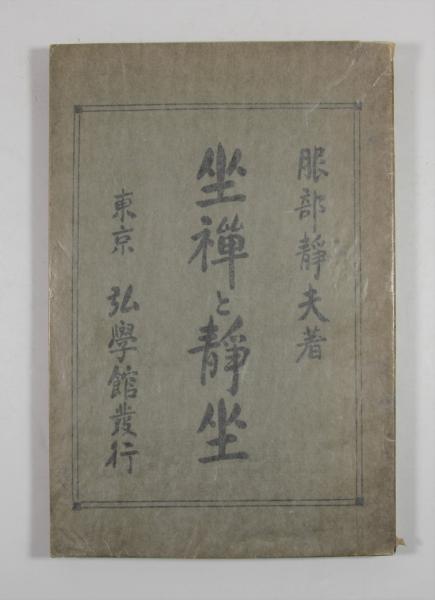 服部靜夫著
坐禪と靜坐
東京 弘學館發行